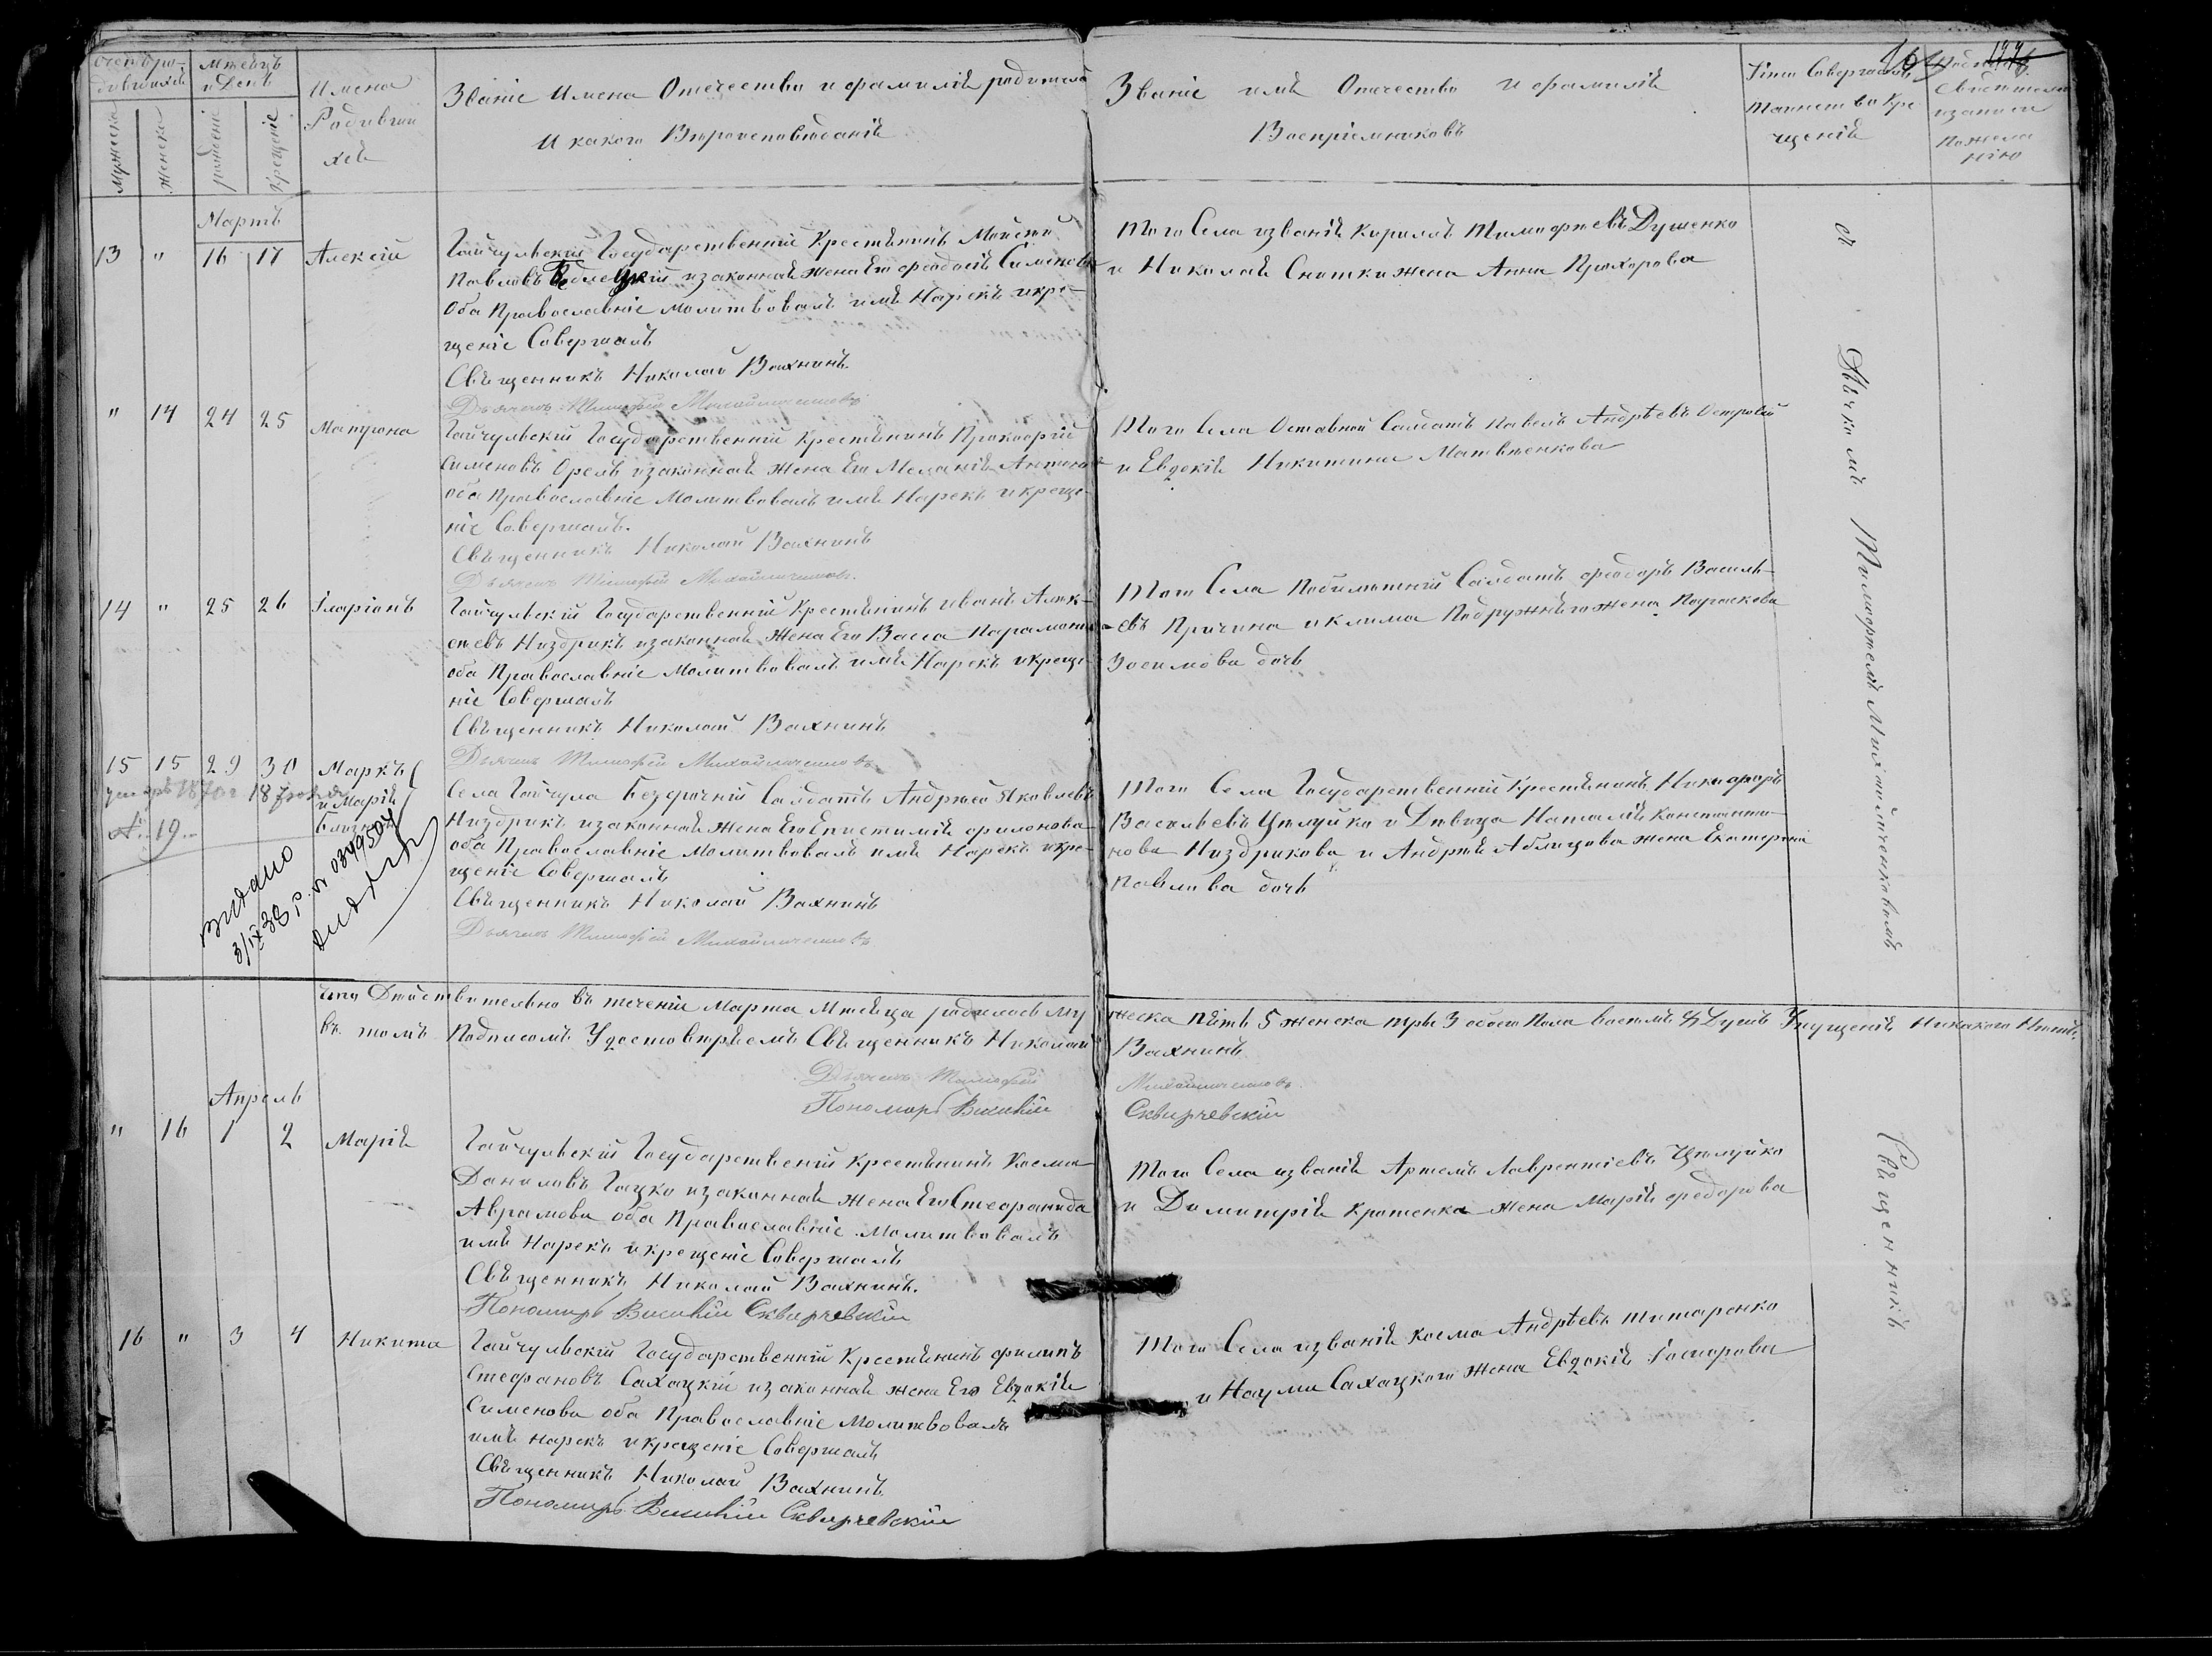 Счетъ ро-
дившихся
Мѣсяцъ
и День
Имена
Родивши
хся
Мужеска
Женска
рожденіе
Крещеніе
Званіе Имена Отечество и фамилія родителей
И какого Вѣроисповѣданія
Званіе имя Отечество и фамилія
Воспріемниковъ
Кто Совершалъ
Таинство Кре
щенія
свидетелей
записи
по жела
нію
Мартъ
13 " 16 17 Алексій
Гайчульскій Государственній Крестянинъ Моисей
Павловъ и законная жена Его Феодосія Сименова
Оба Православніе Молитвовалъ имя Нарекъ и кре-
щеніе Совершалъ
Священникъ Николай Вахнинъ.
Дьячекъ Тимофей Михайличенковъ
Того Села и званія Кирилъ Тимофеевъ Душенко
и Николая Снитки жена Анна Прохорова
" 14 24 25 Матрона
Гайчульскій Государственній Крестянинъ Прокофій
Сименовъ Орелъ и законная жена Его Меланія Антонова
оба Православніе Молитвовалъ имя Нарекъ и креще-
ніе Совершалъ.
Священникъ Николай Вахнинъ
Дьячекъ Тимофей Михайличенковъ.
Того Села Отставной Салдатъ Павелъ Андрѣевъ Острый
и Евдокія Никитина Матвѣенкова
14 " 25 26 Іларіонъ
Гайчульскій Государственній Крестянинъ Иванъ Алек-
сѣевъ Низдрикъ и законная Жена Его Васса
оба Православніе Молитвовалъ имя Нарекъ и креще-
ніе Совершалъ
Священникъ Николай Вахнинъ
Дьячекъ Тимофей Михайличенковъ
Того Села Салдатъ Феодоръ Василь-
евъ Причина и Клима Подружняго жена Параскева
Зосимова дочь
15 15 29 30 Маркъ
и Марія
Близн
№ 19
видано
3/IX 38 р. 0349504
Села Гайчула Безсрочній Салдатъ Андрей Яковлевъ
Низдрикъ и законная жена Его Епистимія Филонова
оба Православніе Молитвовалъ имя Нарекъ и кре-
щеніе Совершалъ
Священникъ Николай Вахнинъ
Дьячекъ Тимофей Михайличенковъ
Того Села Государственній Крестянинъ Никифоръ
Васильевъ Цѣлуйко и Дѣвица Наталія Константи-
нова Низдрикова и Андрѣя Аблицова жена Екатерина
Павлова дочь
съ Дьячкомъ Тимофеемъ Михайличенковымъ
что Действительно въ теченіи Марта Мѣсяца родилось му
жеска пять 5 женска три 3 обоего Пола восемь 8 Душъ Упущенія Никакого Нетъ,
въ томъ Подписомъ Удостовѣряемъ Священникъ Николай
Вахнинъ
Дьячекъ Тимофей
Михайличенковъ.
Пономарь Василій
Сквирчевскій
Апрель
" 16 1 2 Марія
Гайчульскій Государственій Крестянинъ Косма
Даниловъ Гацко и законная жена Его Стефанида
Аврамова оба Православніе Молитвовалъ
имя Нарекъ и крещеніе Совершалъ
Священникъ Николай Вахнинъ.
Пономарь Василій Сквирчевскій
Того Села и званія Артемъ Лаврентіевъ Цѣлуйко
и Димитрія Кротенка жена Марія Федорова
Священникъ
16 " 3 4 Никита
Гайчульскій Государственній Крестянинъ Филипъ
Стефановъ Сахацкій и законная жена Его Евдокія
Сименова оба Православніе Молитвовалъ
имя нарекъ и крещеніе Совершалъ
Священникъ Николай Вахнинъ
Пономарь Василій Сквирчевскій
Того Села и званія Косма Андрѣевъ Титаренко
и Наума Сахацкого жена Евдокія